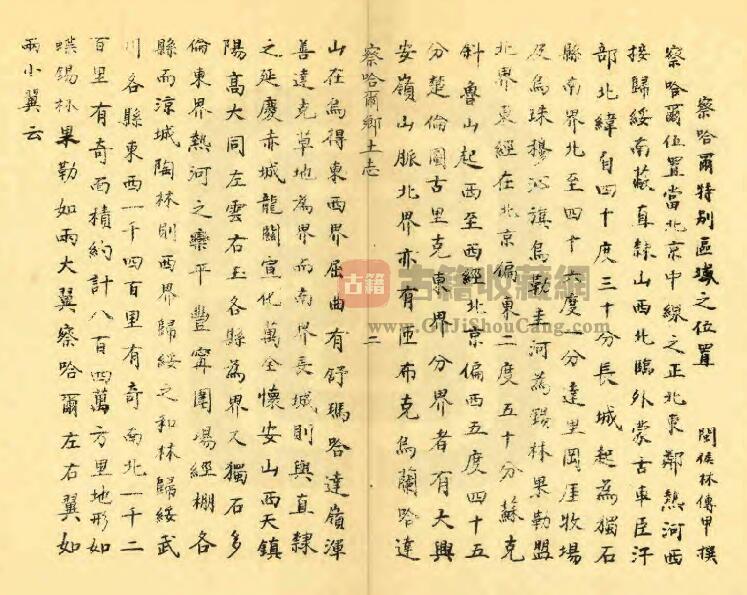 察哈爾特別區域之位置　閩侯林傳甲撰
察哈爾位置當北京中線之正北東鄰熱河西
接歸綏南蔽直隸山西北臨外蒙古車臣汗
部北緯自四十度三十分長城起為獨石
縣南界北至四十六度一分達里岡厓牧場
及烏珠穆沁旗烏勒圭河為錫林果勒盟
北界東經在北京偏東二度五十分蘇克
斜魯山起西至西經北京偏西五度四十五
分楚倫圖古里克東界分界者有大興
安嶺山脈北界亦有西布克烏蘭哈達
察哈爾鄉土志
二
山在烏得東西界屈曲有舒瑪哈達嶺渾
善達克草地為界而南界長城則與直隸
之延慶赤城龍關宣化萬全懷安山西天鎮
陽高大同左雲右玉各縣為界又獨石多
倫東界熱河之灤平豐甯圍場經棚各
縣而涼城陶林則西界歸綏之和林歸綏武
川各縣東西一千四百里有奇南北一千二
百里有奇面積約計八百四萬方里地形如
蝶錫林果勒如兩大翼察哈爾左右翼如
兩小翼云
古籍 古籍收藏网
www.GuJiShouCang.com